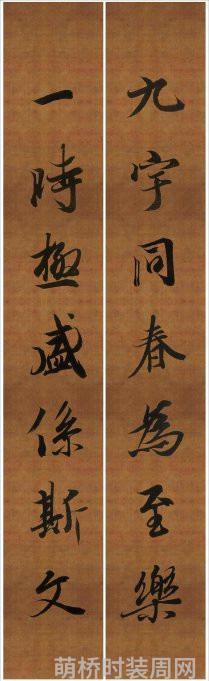 九宇同春為至樂
一時極盛係斯文
萌桥时装周网